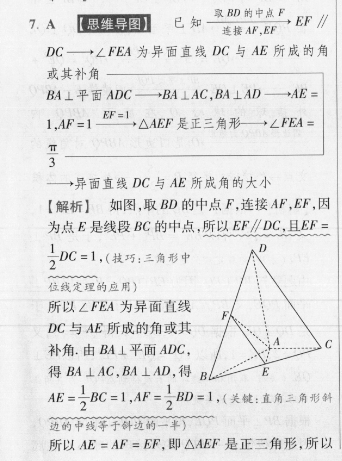 7. A 【思维导图】 已知 取 BD 的中点 F 连接 AF,EF → EF //
DC ⟶ ∠FEA 为异面直线 DC 与 AE 所成的角
或其补角
BA⊥平面 ADC ⟶ BA⊥AC,BA⊥AD ⟶ AE =
1,AF = 1 EF=1 ⟶ △AEF 是正三角形 ⟶ ∠FEA =
π/3
⟶ 异面直线 DC 与 AE 所成角的大小
【解析】 如图,取 BD 的中点 F,连接 AF,EF,因
为点 E 是线段 BC 的中点,所以 EF//DC,且EF =
1/2 DC = 1,(技巧:三角形中
位线定理的应用)
所以∠FEA 为异面直线
DC 与 AE 所成的角或其
补角. 由 BA⊥平面 ADC,
得 BA⊥AC,BA⊥AD,得
AE = 1/2 BC = 1,AF = 1/2 BD = 1,(关键:直角三角形斜
边的中线等于斜边的一半)
所以 AE = AF = EF,即△AEF 是正三角形,所以
D
F
A
C
B
E